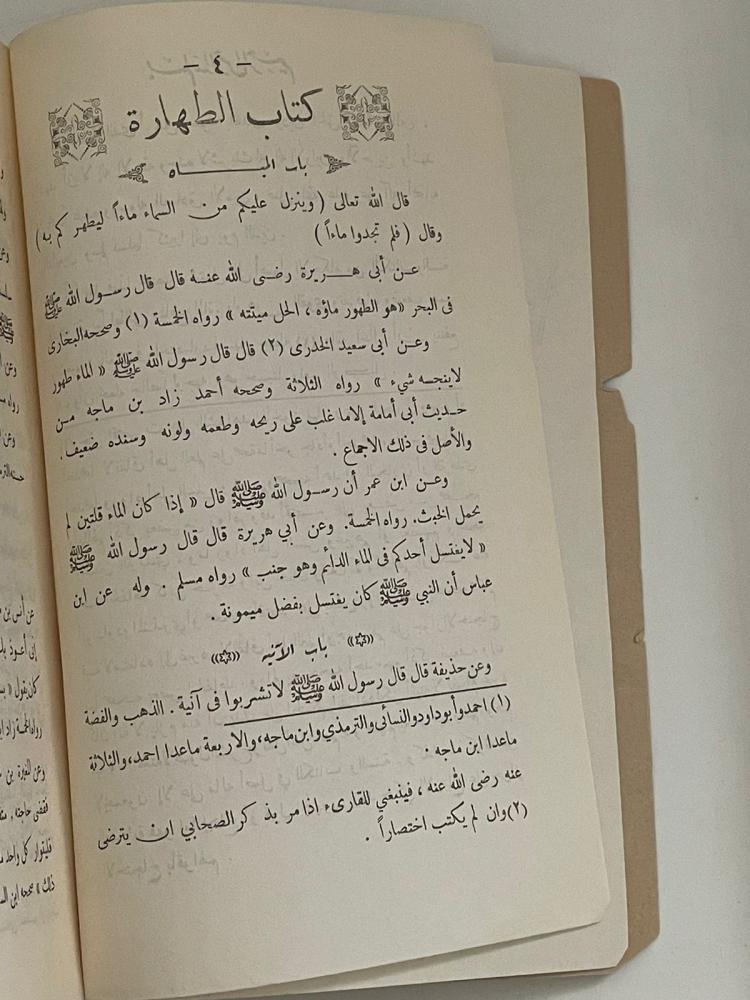 — ٤ —
كتاب الطهارة
باب المياه
قال الله تعالى (وينزل عليكم من السماء ماءاً ليطهركم به)
وقال (فلم تجدوا ماءاً)
عن أبي هريرة رضى الله عنه قال قال رسول الله ﷺ
فى البحر «هو الطهور ماؤه ، الحل ميتته» رواه الخمسة (١) وصححه البخارى
وعن أبى سعيد الخدرى (٢) قال قال رسول الله ﷺ « الماء طهور
لاينجسه شيء » رواه الثلاثة وصححه أحمد زاد بن ماجه من
حديث أبى أمامة إلاما غلب على ريحه وطعمه ولونه وسنده ضعيف .
والأصل في ذلك الاجماع .
وعن ابن عمر أن رسول الله ﷺ قال « إذا كان الماء قلتين لم
يحمل الخبث . رواه الخمسة . وعن أبي هريرة قال قال رسول الله ﷺ
« لايغتسل أحدكم فى الماء الدائم وهو جنب » رواه مسلم . وله عن ابن
عباس أن النبي ﷺ كان يغتسل بفضل ميمونة .
باب الآنيه
وعن حذيفة قال قال رسول الله ﷺ لاتشربوا فى آنية . الذهب والفضة
(١) احمدوأبوداودوالنسائى والترمذي وابن ماجه، والاربعة ماعدا احمد، والثلاثة
ماعدا ابن ماجه .
عنه رضى الله عنه ، فينبغي للقارىء اذا مر بذكر الصحابي ان يترضى
(٢) وان لم يكتب اختصاراً .